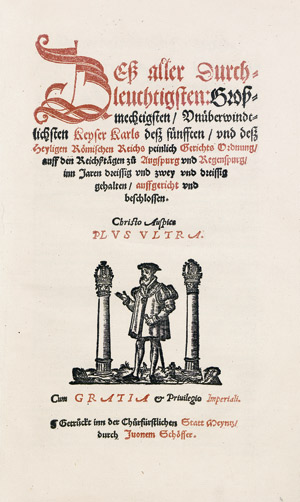 Deß aller Durch-
leuchtigsten: Groß-
mechtigsten / Vnüberwindt-
lichsten Keyser Karls deß fünfften / vnd deß
Heyligen Römischen Reichs peinlich Gerichts Ordnung /
auff den Reichßtägen zů Augspurg vnd Regenspurg /
inn Jaren dreissig vnd zwey vnd dreissig
gehalten / auffgericht vnd
beschlossen.
Christo Auspice
PLVS VLTRA.
Cum GRATIA & Priuilegio Imperiali.
¶ Getrückt inn der Chürfürstlichen Statt Meyntz /
durch Juonem Schöffer.